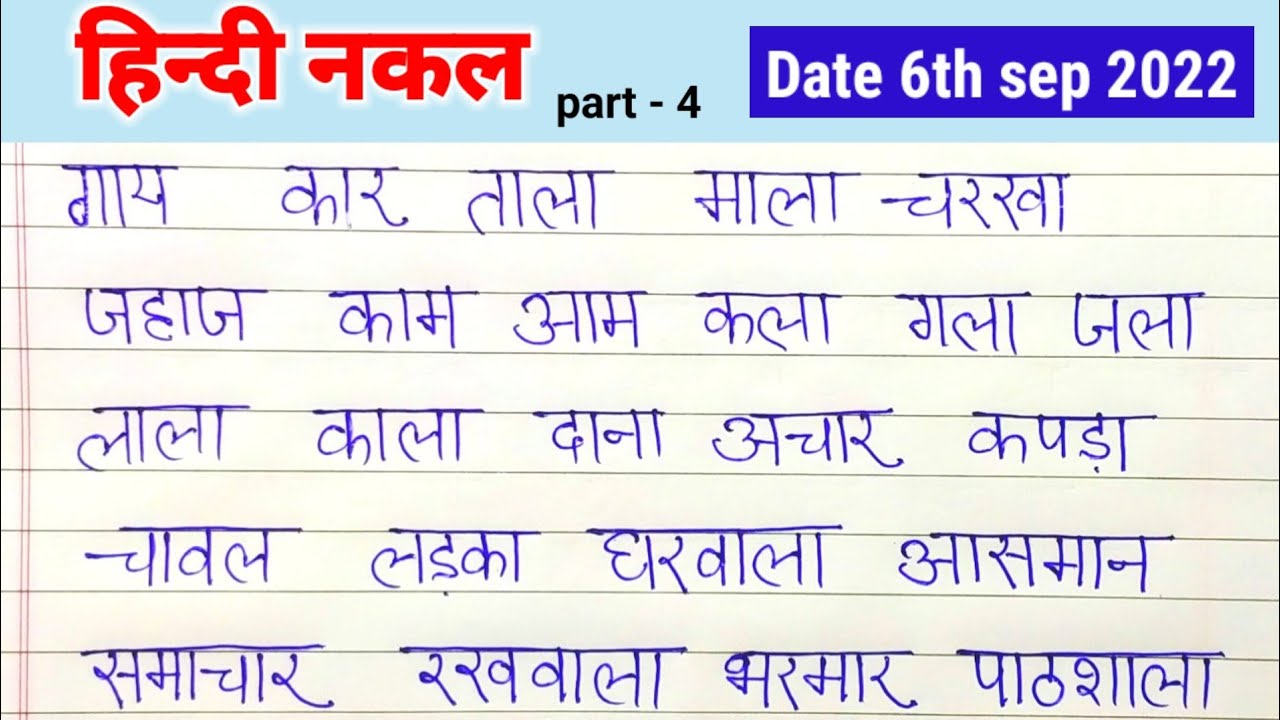 हिन्दी नकल part - 4 Date 6th sep 2022
गाय कार ताला माला चरखा
जहाज काम आम कला गला जला
लाला काला दाना अचार कपड़ा
चावल लड़का घरवाला आसमान
समाचार रखवाला भरमार पाठशाला